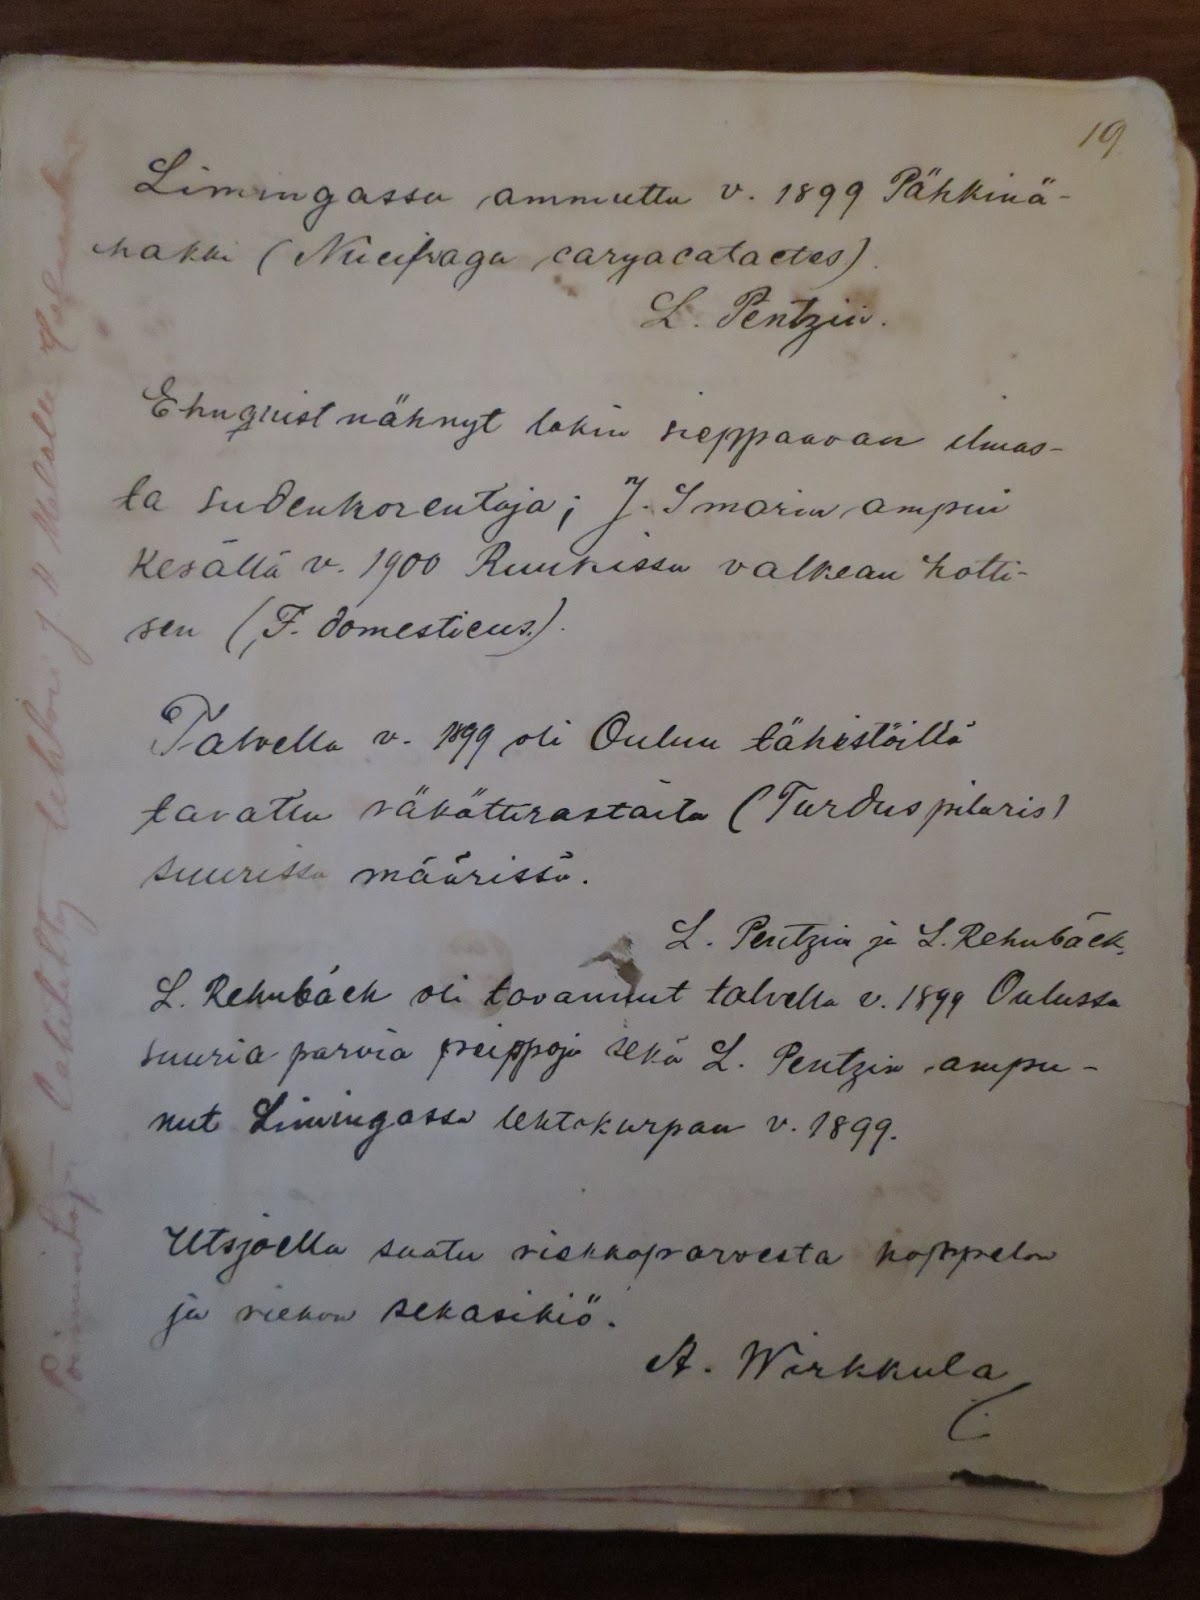 19
Limingassa ammuttu v. 1899 Pähkinä-
hakki (Nucifraga caryacatactes).
L. Pentzin.
Ehnquist nähnyt lokin sieppaavan ilmas-
ta sudenkorentoja; J. Smarin ampui
kesällä v. 1900 Ruukissa valkean hotti-
sen (F. domesticus.).
Talvella v. 1899 oli Oulun lähistöillä
tavattu räkättirastaita (Turdus pilaris)
suurissa määrissä.
L. Pentzin ja L. Rehnbäck.
L. Rehnbäck oli tavannut talvella v. 1899 Oulussa
suuria parvia peippoja sekä L. Pentzin ampu-
nut Limingassa lehtokurpan v. 1899.
Utsjoella saatu riekkoparvesta koppelon
ja riekon sekasikiö.
A. Wirkkula
Poimintoja lähetetty tohtori J. A.